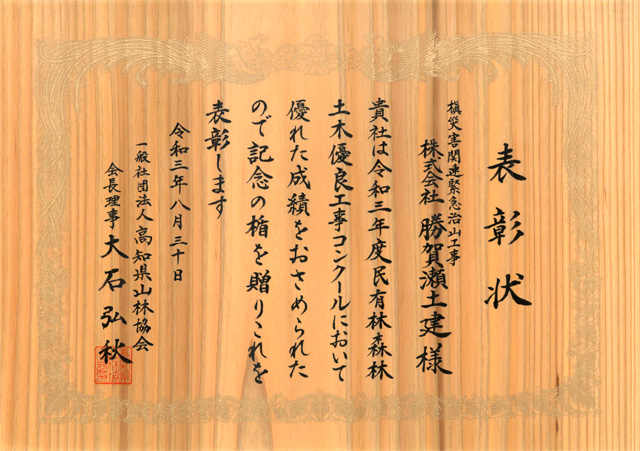 表彰状
槇災害関連緊急治山工事
株式会社 勝賀瀬土建 様
貴社は令和三年度民有林森林
土木優良工事コンクールにおいて
優れた成績をおさめられた
ので記念の楯を贈りこれを
表彰します
令和三年八月三十日
一般社団法人 高知県山林協会
会長理事 大石弘秋